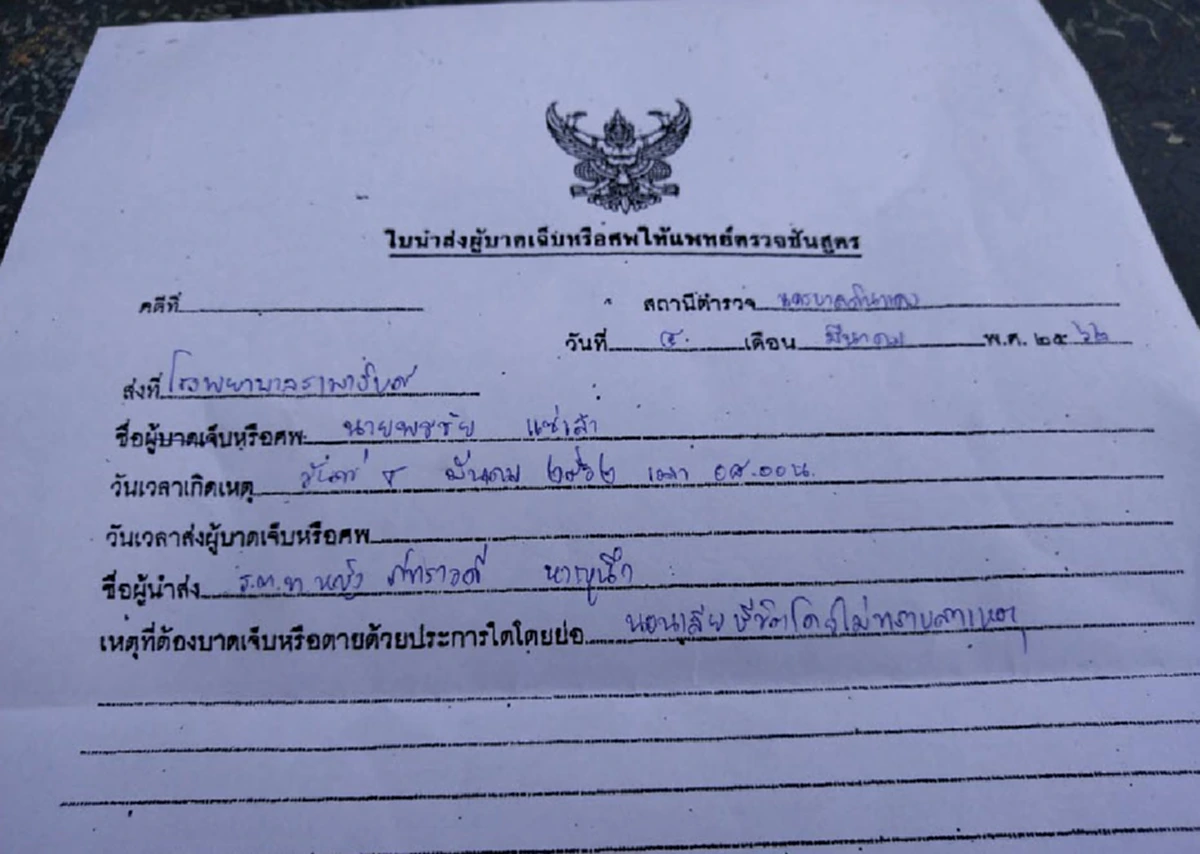 ใบนำส่งผู้บาดเจ็บหรือศพให้แพทย์ตรวจชันสูตร
คดีที่
สถานีตำรวจ
วันที่ ๔ เดือน มีนาคม พ.ศ. ๒๕๖๒
ส่งที่ โรงพยาบาลรามาธิบดี
ชื่อผู้บาดเจ็บหรือศพ นายพรชัย แซ่เล้า
วันเวลาเกิดเหตุ วันที่ ๔ มีนาคม ๒๕๖๒ เวลา
วันเวลาส่งผู้บาดเจ็บหรือศพ
ชื่อผู้นำส่ง ร.ต.ท.หญิง ภัทราวดี
เหตุที่ต้องบาดเจ็บหรือตายด้วยประการใดโดยย่อ นอนเสียชีวิตโดยไม่ทราบสาเหตุ